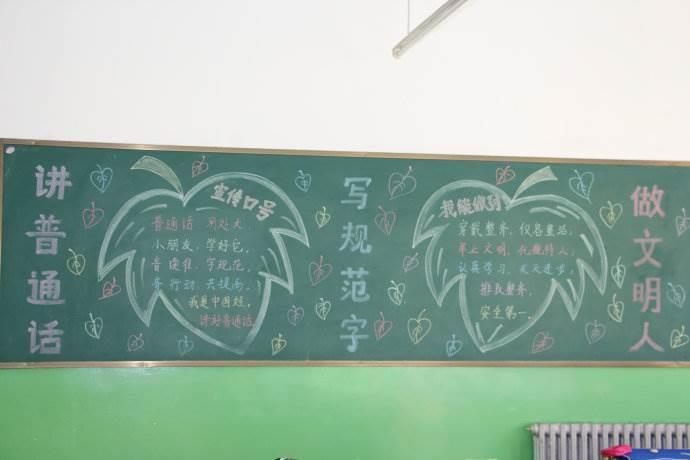 讲普通话
宣传口号
普通话 用处大
小朋友,学好它,
音读准,字规范,
齐行动,共提高,
我是中国娃,
讲好普通话。
写规范字
我能做到
穿戴整齐,仪容整洁,
举止文明,礼貌待人,
认真学习,天天进步,
排队整齐,
安全第一。
做文明人